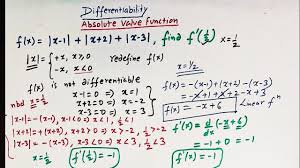 Differentiability
Absolute Value function
f(x) = |x-1| + |x+2| + |x-3|, find f'(1/2) x=1/2
|x| = { +x, x≥0
-x, x<0
redefine f(x)
f(x) is not differentiable
x-1=0 ⇒ x=1
x+2=0 ⇒ x=-2
x-3=0 ⇒ x=3
nbd x=1/2
|x-1| = -(x-1) ∵ x-1<0 ⇒ x<1, 1/2<1
|x+2| = +(x+2), x+2>0 ⇒ x>-2, 1/2>-2
|x-3| = -(x-3) ∵ x-3<0 ⇒ x<3, 1/2<3
x=1/2
f'(1/2) = -1
x=1/2
f(x) = -(x-1) + (x+2) - (x-3)
= -x+1+x+2-x+3
f(x) = -x+6
Linear fⁿ
f'(x) = d/dx (-x+6)
= -1+0 = -1